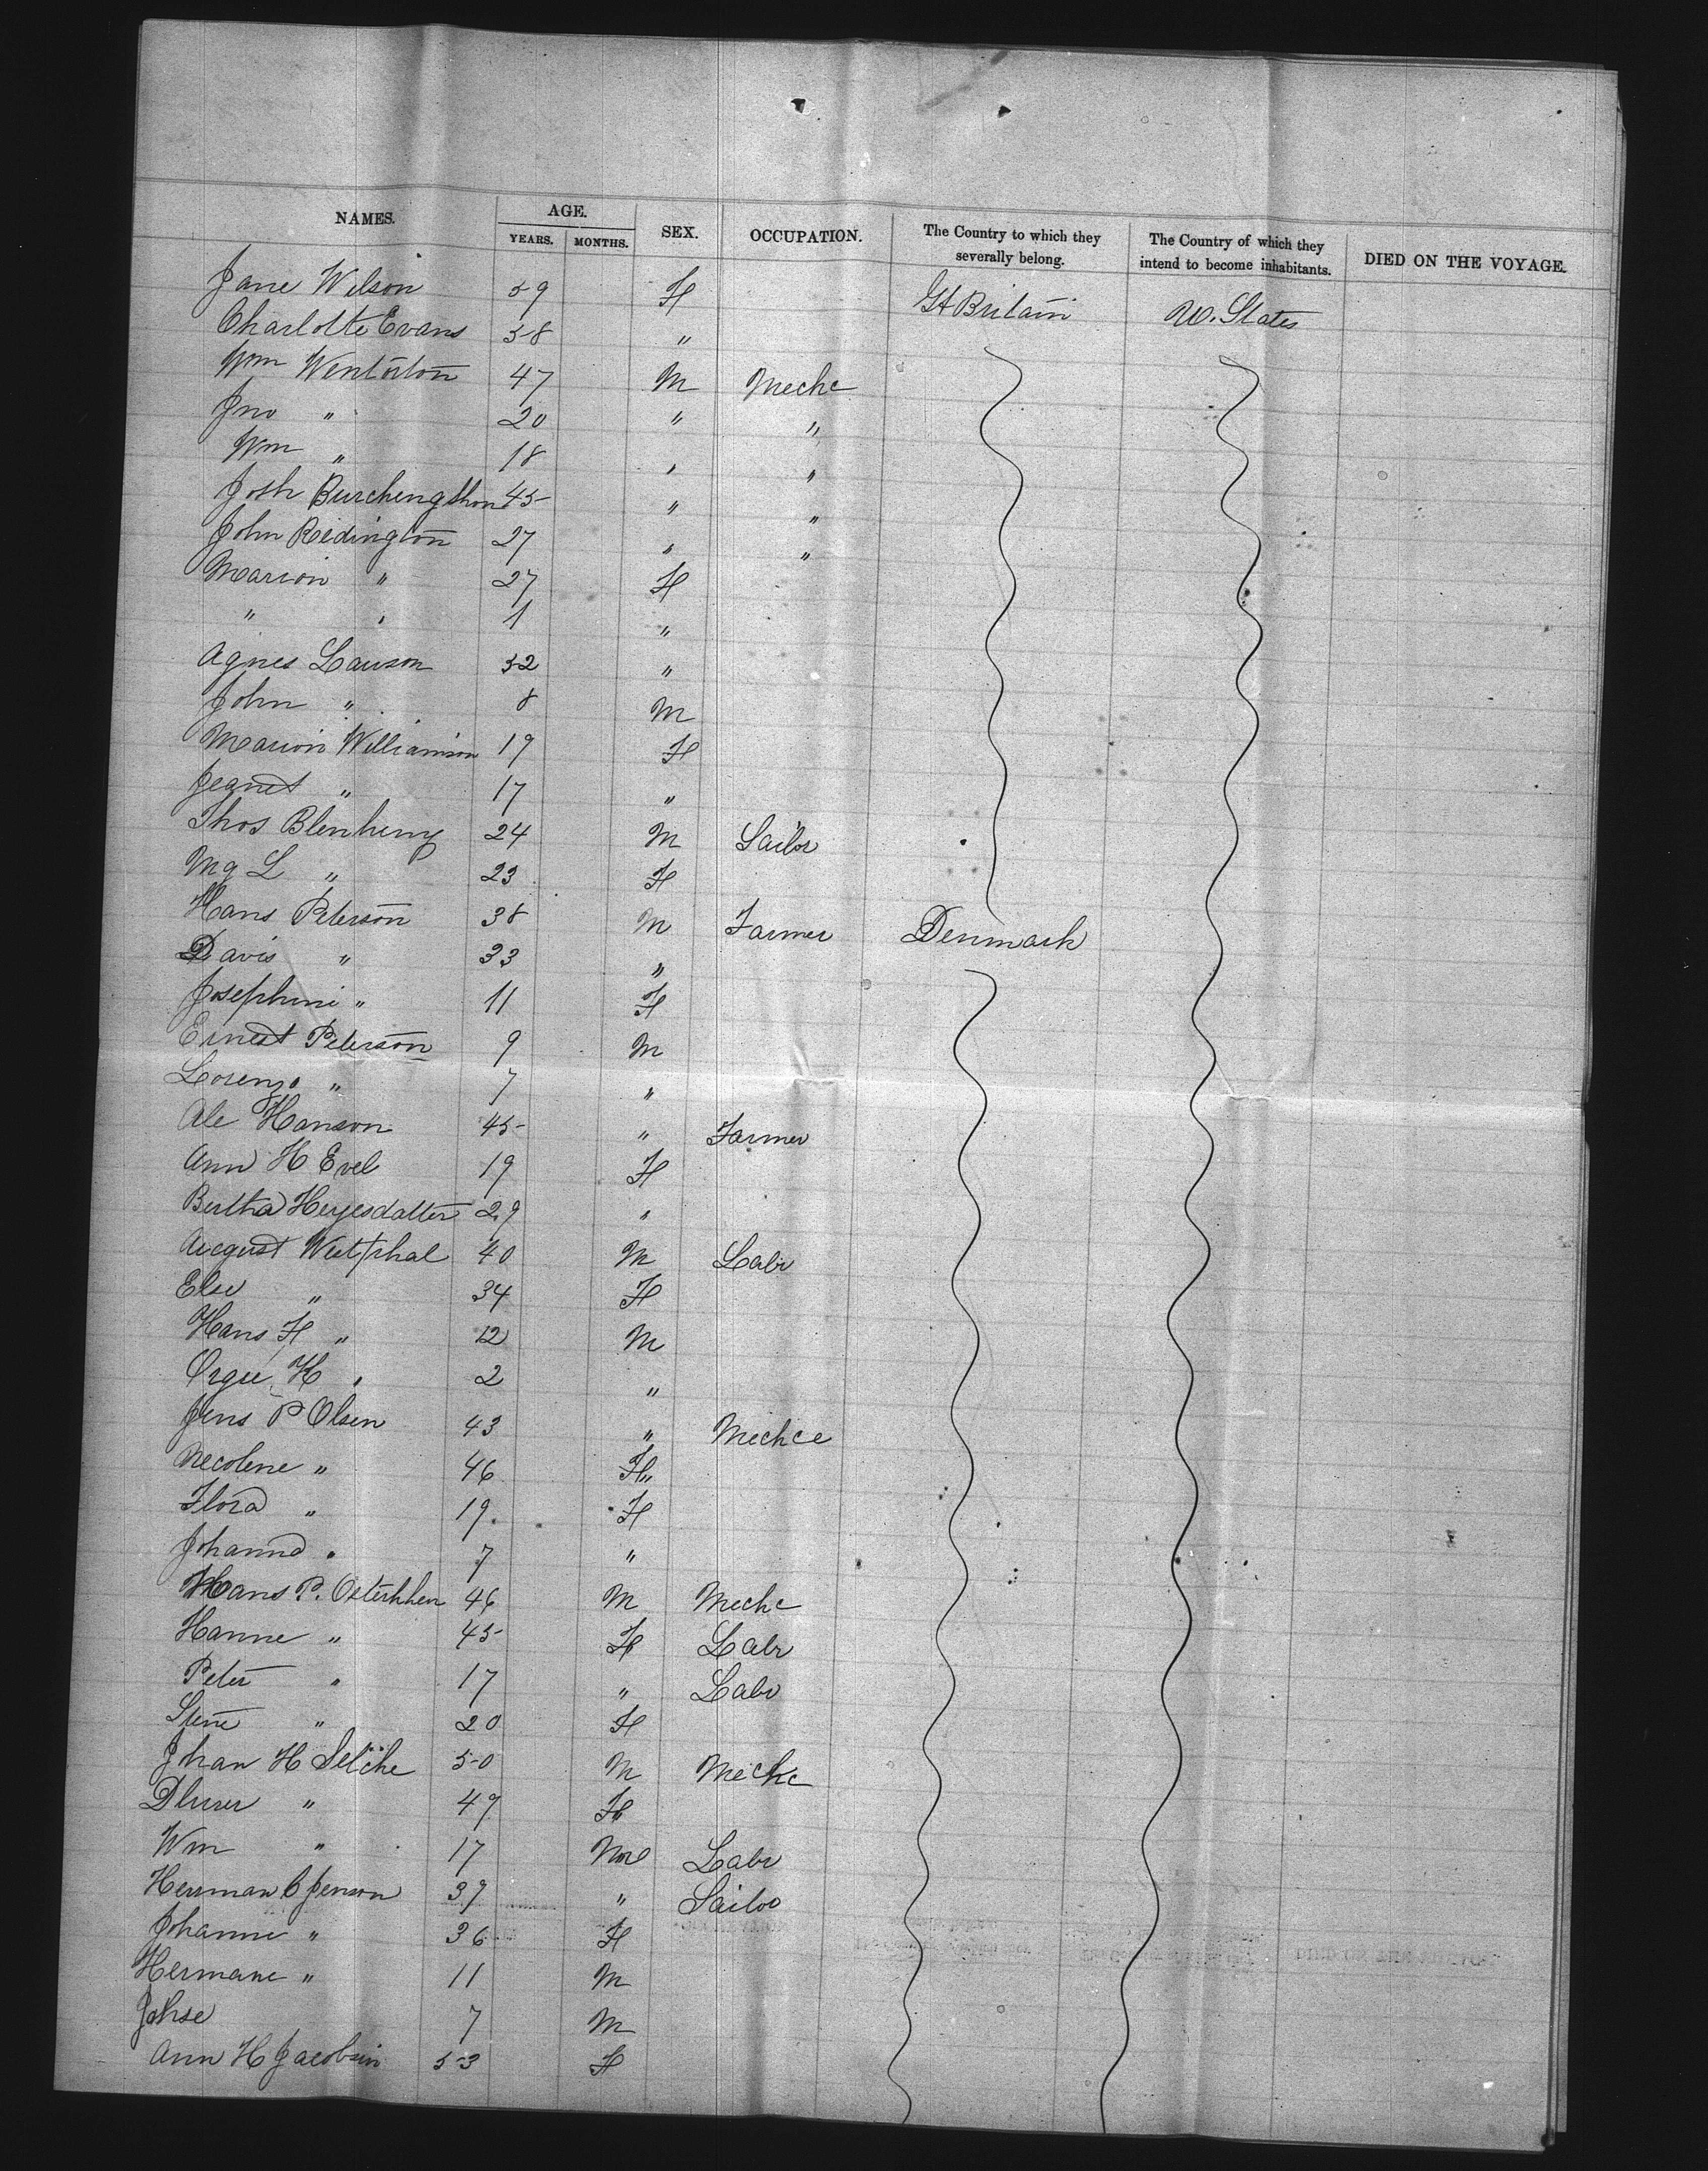 NAMES. AGE. YEARS. MONTHS. SEX. OCCUPATION. The Country to which they severally belong. The Country of which they intend to become inhabitants. DIED ON THE VOYAGE.
Jane Wilson 59 F Gt Britain U. States
Charlotte Evans 38 "
Wm Winterton 47 M Mechc
Jno " 20 " "
Wm " 18 " "
Josh Burchengthon 45 " "
John Redington 27 " "
Marion " 27 F
" " 1 "
Agnes Lawson 32 "
John " 8 M
Marion Williamson 19 F
Jeanet " 17 "
Thos Blenheny 24 M Sailor
Mg L " 23 F
Hans Peterson 38 M Farmer Denmark
Davis " 33 "
Josephine " 11 F
Ernest Peterson 9 M
Lorenzo " 7 "
Ole Hanson 45 " Farmer
Ann H Evel 19 F
Bertha Heyesdatter 29 "
August Westphal 40 M Labr
Else " 34 F
Hans F " 12 M
H " 2 "
Jens P Olsen 43 " Mechce
Necolene " 46 F
Flora " 19 F
Johanna " 7 "
Hans P. 46 M Mechc
Hanne " 45 F Labr
Peter " 17 " Labr
Stine " 20 F
Johan H 50 M Mechc
" 49 F
Wm " 17 M Labr
Herman C Jenson 39 " Sailor
Johanne " 36 F
Hermane " 11 M
Johse 7 M
Ann H Jacobsin 53 F